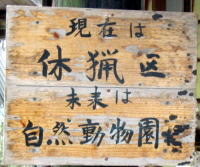 現在は
休猟区
未来は
自然動物園